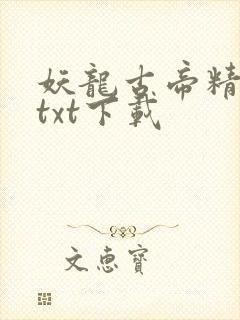 妖龍古帝精
txt下載
文惠寶